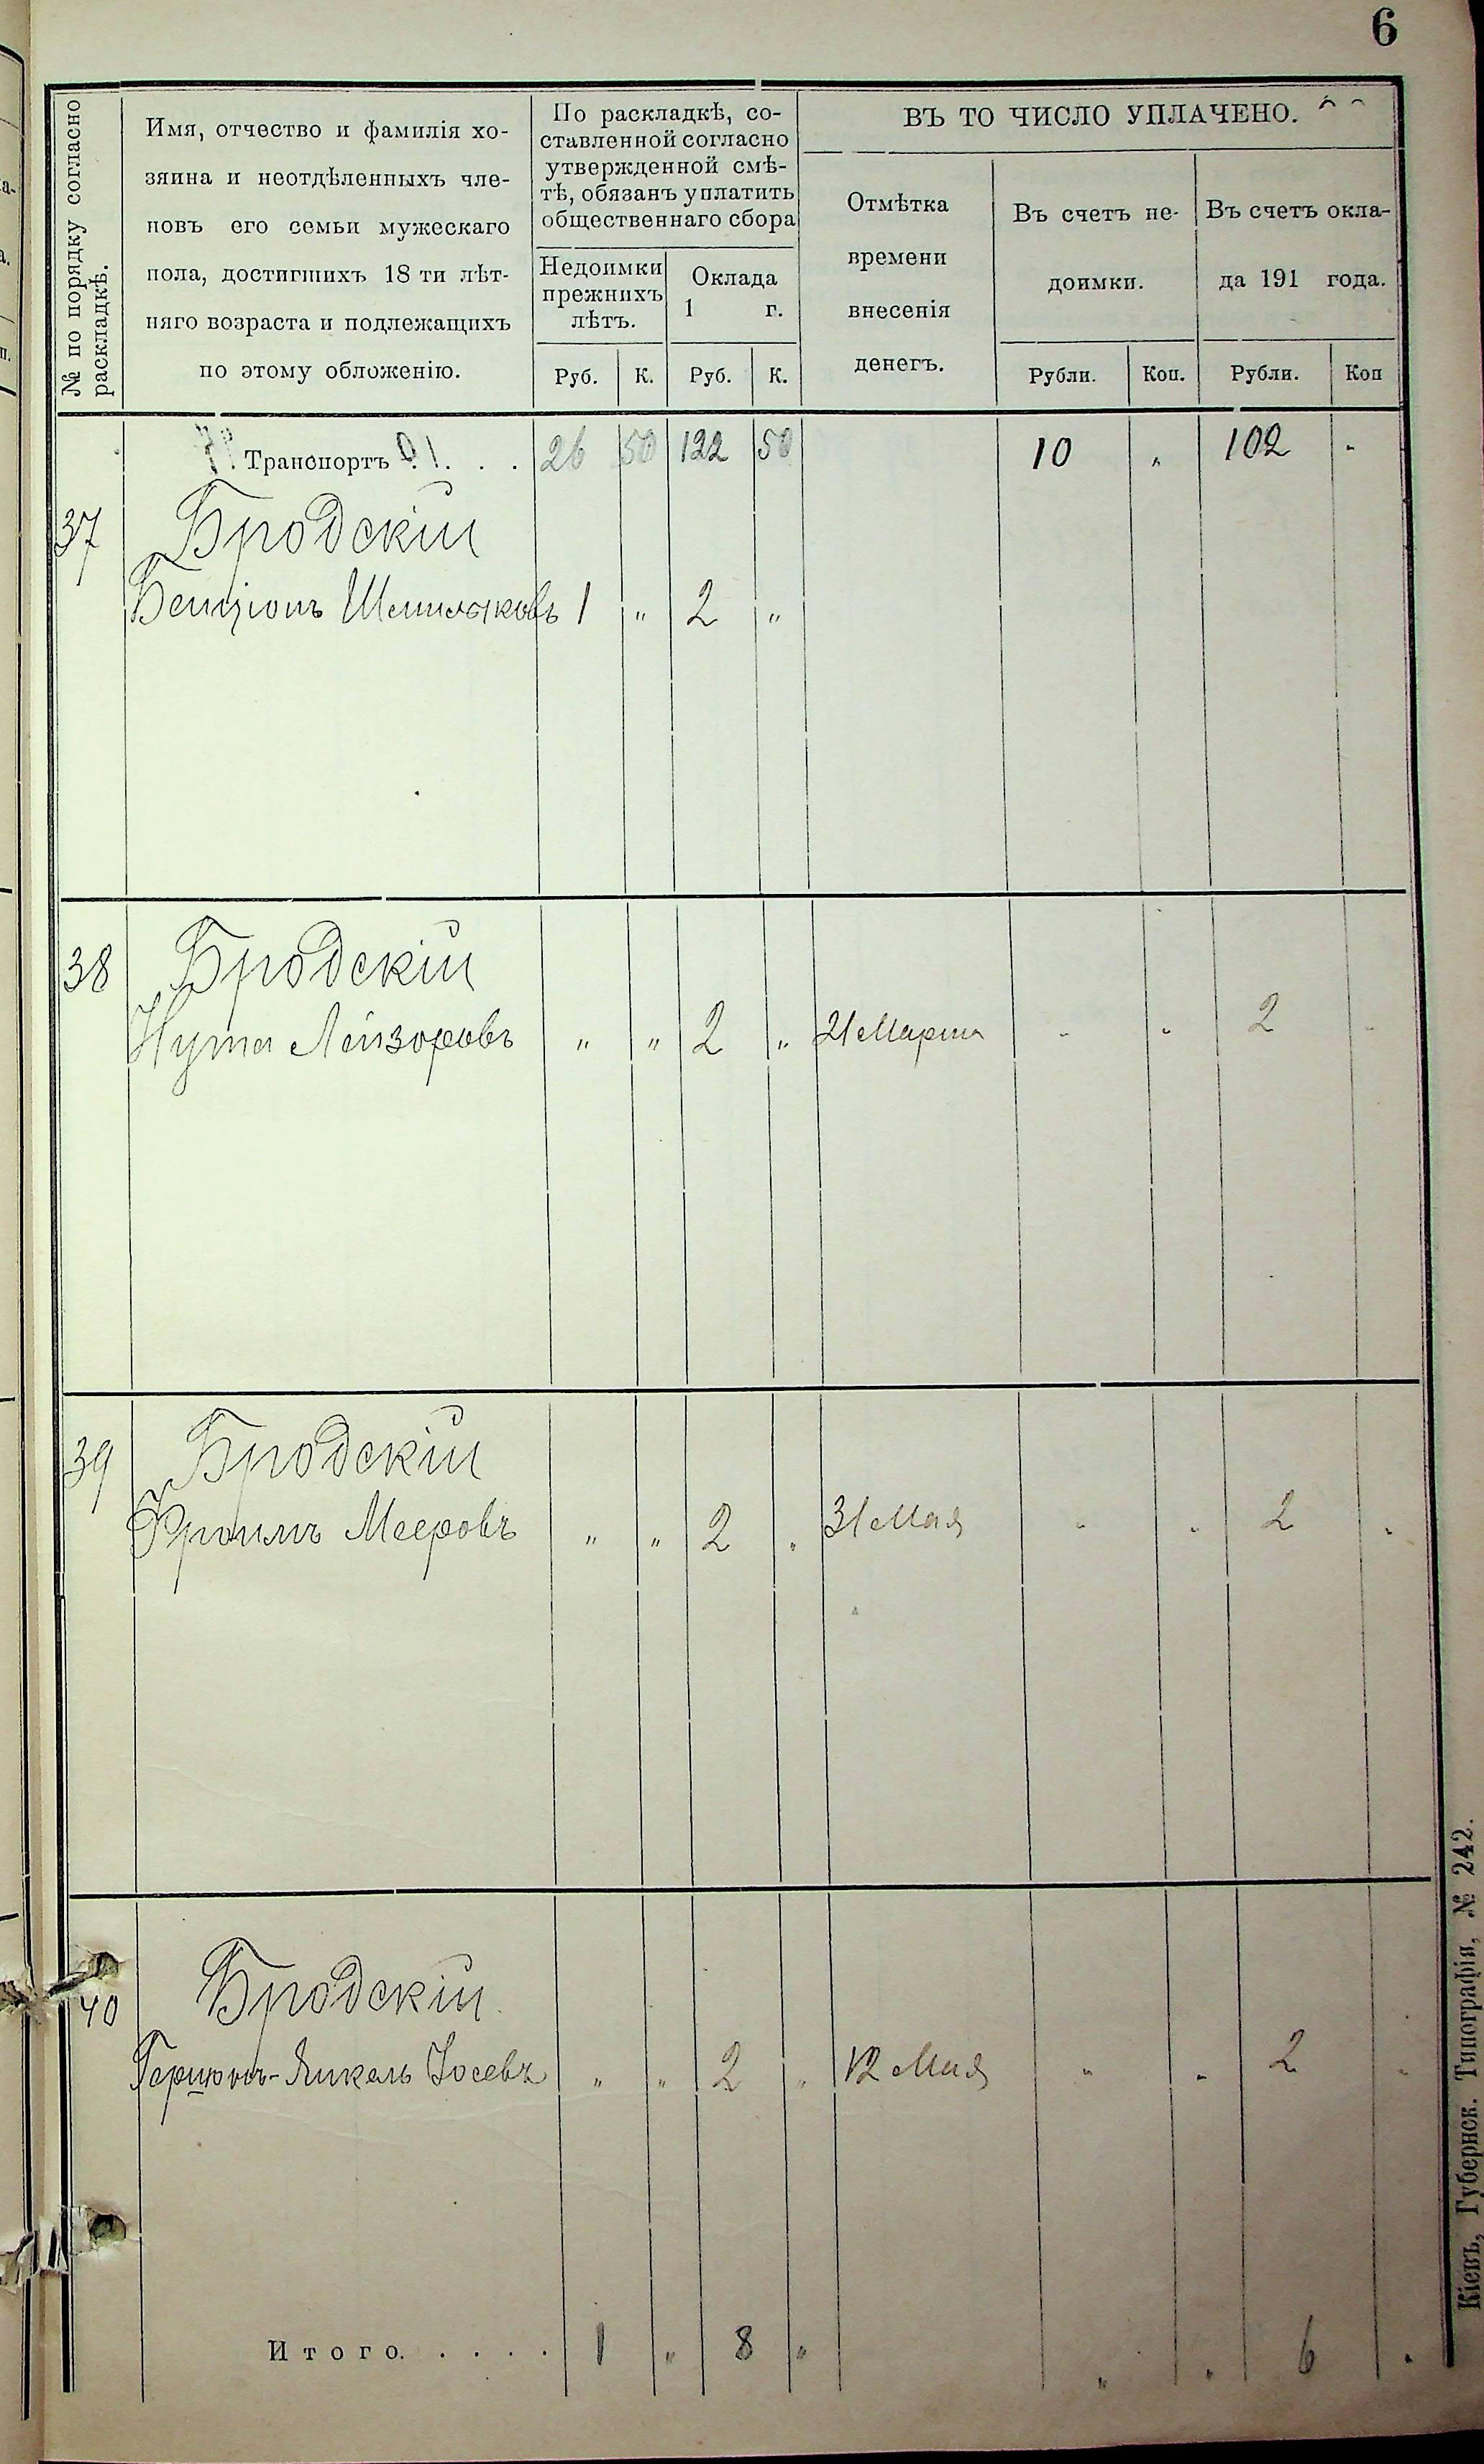 6
№ по порядку согласно раскладкѣ.
Имя, отчество и фамилія хо-
зяина и неотдѣленныхъ чле-
новъ его семьи мужескаго
пола, достигшихъ 18 ти лѣт-
няго возраста и подлежащихъ
по этому обложенію.
По раскладкѣ, со-
ставленной согласно
утвержденной смѣ-
тѣ, обязанъ уплатить
общественнаго сбора
Недоимки
прежнихъ
лѣтъ.
Оклада
1 г.
Руб. К. Руб. К.
ВЪ ТО ЧИСЛО УПЛАЧЕНО.
Отмѣтка
времени
внесенія
денегъ.
Въ счетъ не-
доимки.
Въ счетъ окла-
да 191 года.
Рубли. Коп. Рубли. Коп
Транспортъ . . . 26 50 122 50 10 „ 102 -
37 Бродскій
Бенціонъ 1 „ 2 „
38 Бродскій
Нута Лейзоровъ „ „ 2 „ 21 Марта - - 2 -
39 Бродскій
Фроимъ Мееровъ „ „ 2 „ 31 Мая - - 2 -
40 Бродскій
Гершонъ-Янкель Іосевъ „ „ 2 „ 12 Мая - - 2 -
Итого. . . . . 1 „ 8 „ „ „ 6 .
Кіевъ, Губернск. Типографія, № 242.